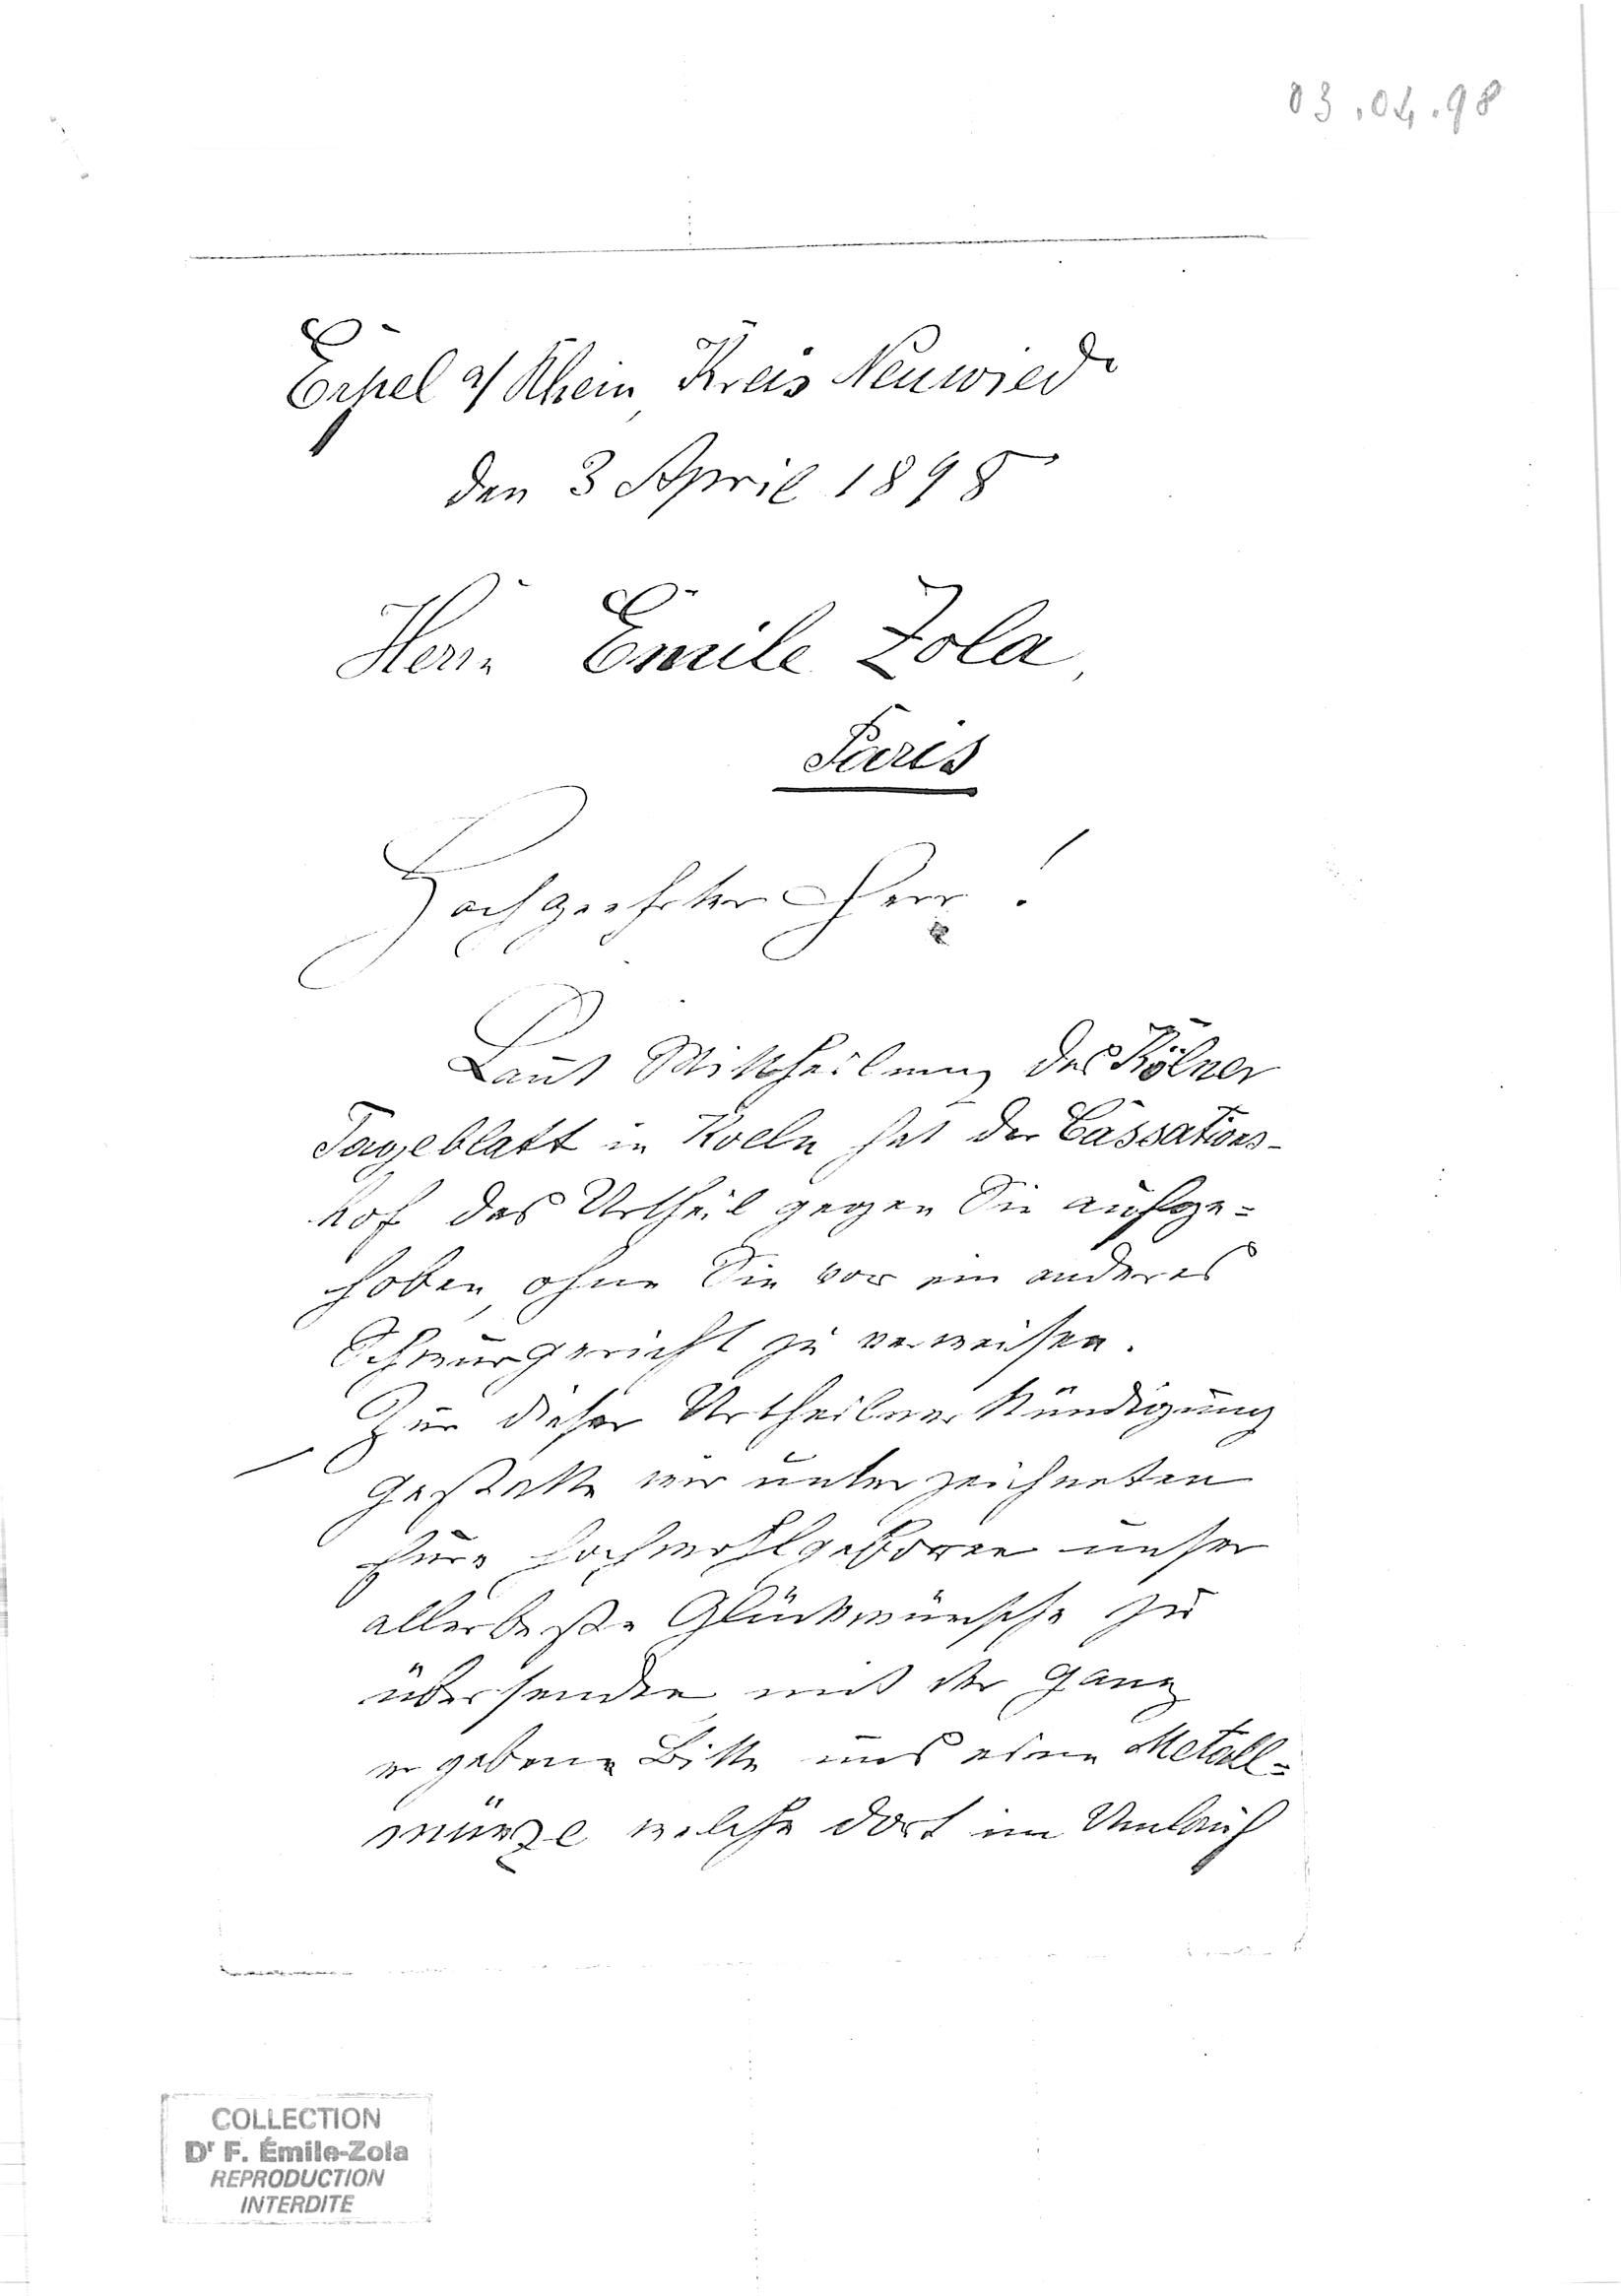 03.04.98
Erpel a/ Rhein, Kreis Neuwied
den 3 April 1898
Herrn Emile Zola,
Paris
Hochgeehrter Herr!
Laut Mittheilung des Kölner
Tageblatt in Koeln hat der Cassations-
hof das Urtheil gegen Sie aufge=
hoben, ohne Sie vor ein anderes
Schwurgericht zu verweisen.
Zur dieser Urtheilverkündigung
gestatte wir unterzeichneten
Eure Hochwohlgeboren unser
allerbeste Glückwünsche zu
übersenden mit der ganz
ergebene Bitte uns eine Metall=
münze welche dort im Umlauf
COLLECTION
Dr F. Émile-Zola
REPRODUCTION
INTERDITE